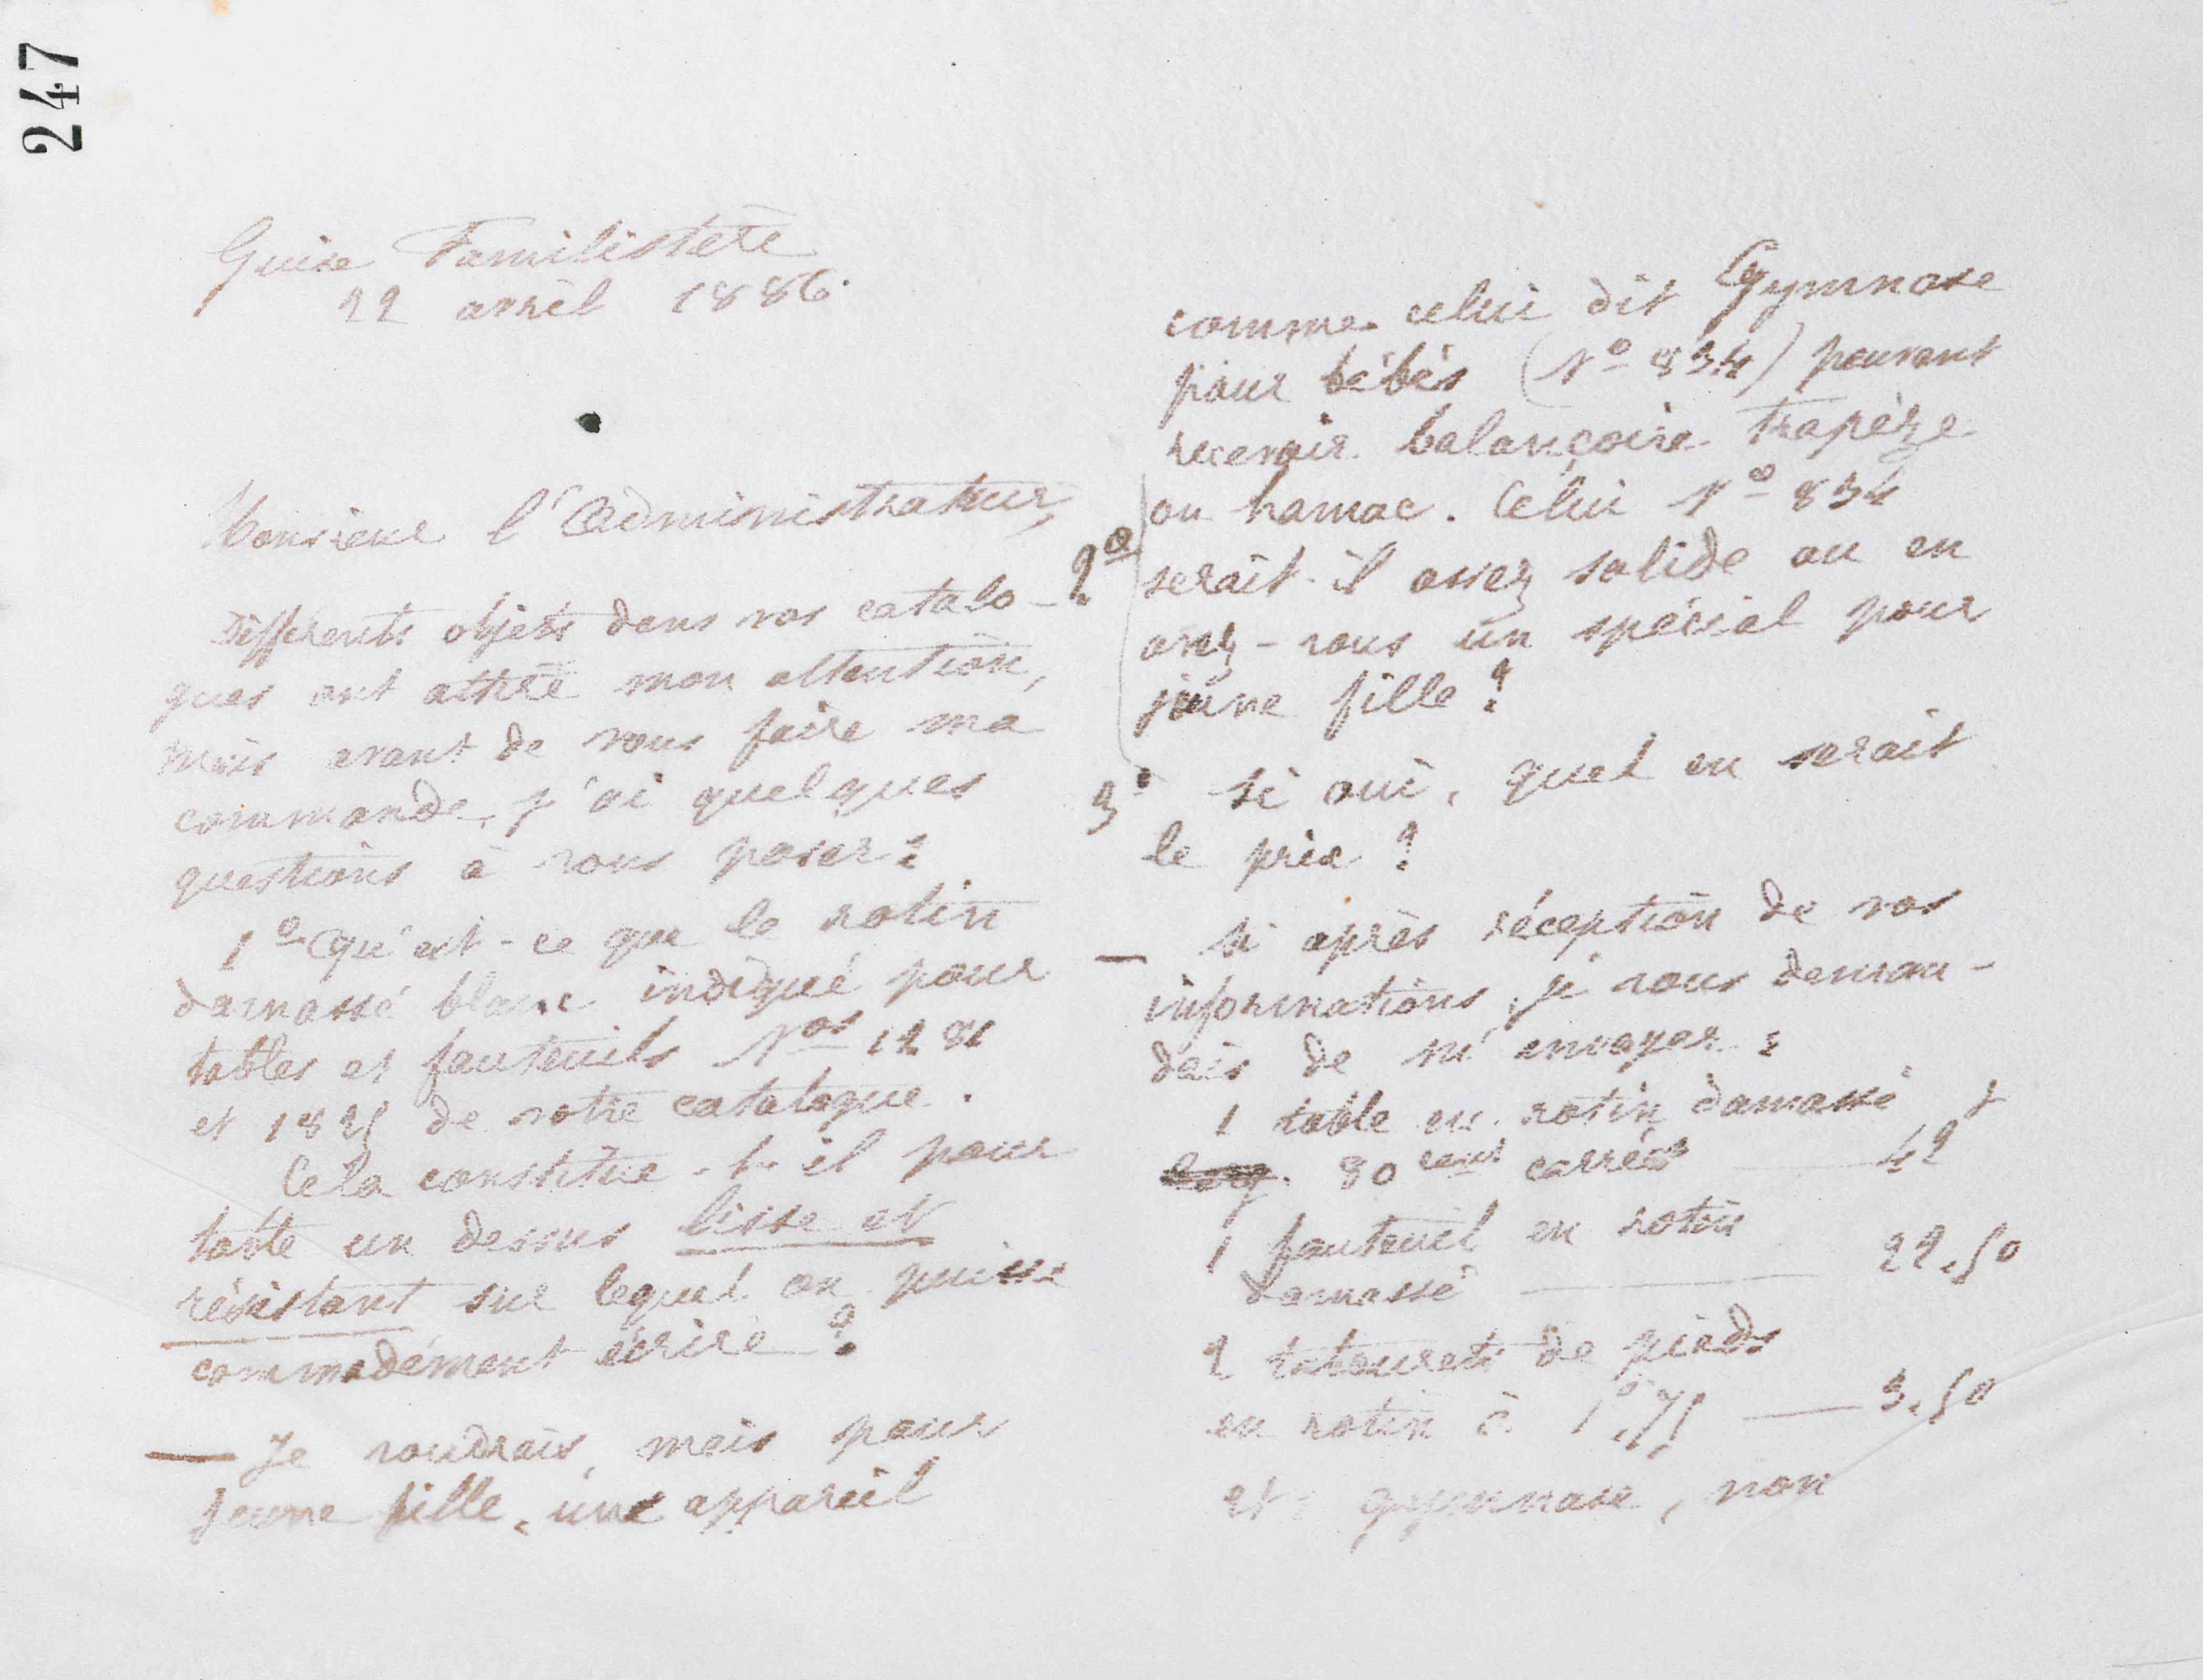 247
Guise Familistère
22 avril 1886.
Monsieur l'Administrateur,
Différents objets dans vos catalo-
gues ont attiré mon attention,
mais avant de vous faire ma
commande, j'ai quelques
questions à vous poser :
1o Qu'est-ce que le rotin
damassé blanc indiqué pour
tables et fauteuils Nos 1281
et 1825 de votre catalogue.
Cela constitue-t-il pour
table un dessus lisse et
résistant sur lequel on puisse
commodément écrire ?
— Je voudrais, mais pour
jeune fille, un appareil
comme celui dit Gymnase
pour bébés (No 834) pouvant
recevoir balançoire trapèze
ou hamac. Celui No 834
2o serait-il assez solide ou en
avez-vous un spécial pour
jeune fille ?
3o Si oui, quel en serait
le prix ?
— Si après réception de vos
informations, je vous deman-
dais de m'envoyer :
1 table en rotin damassé
80 cent carrés 42 f
1 fauteuil en rotin
damassé 22,50
2 tabourets de pieds
en rotin à 1f,75 — 3,50
et gymnase, non